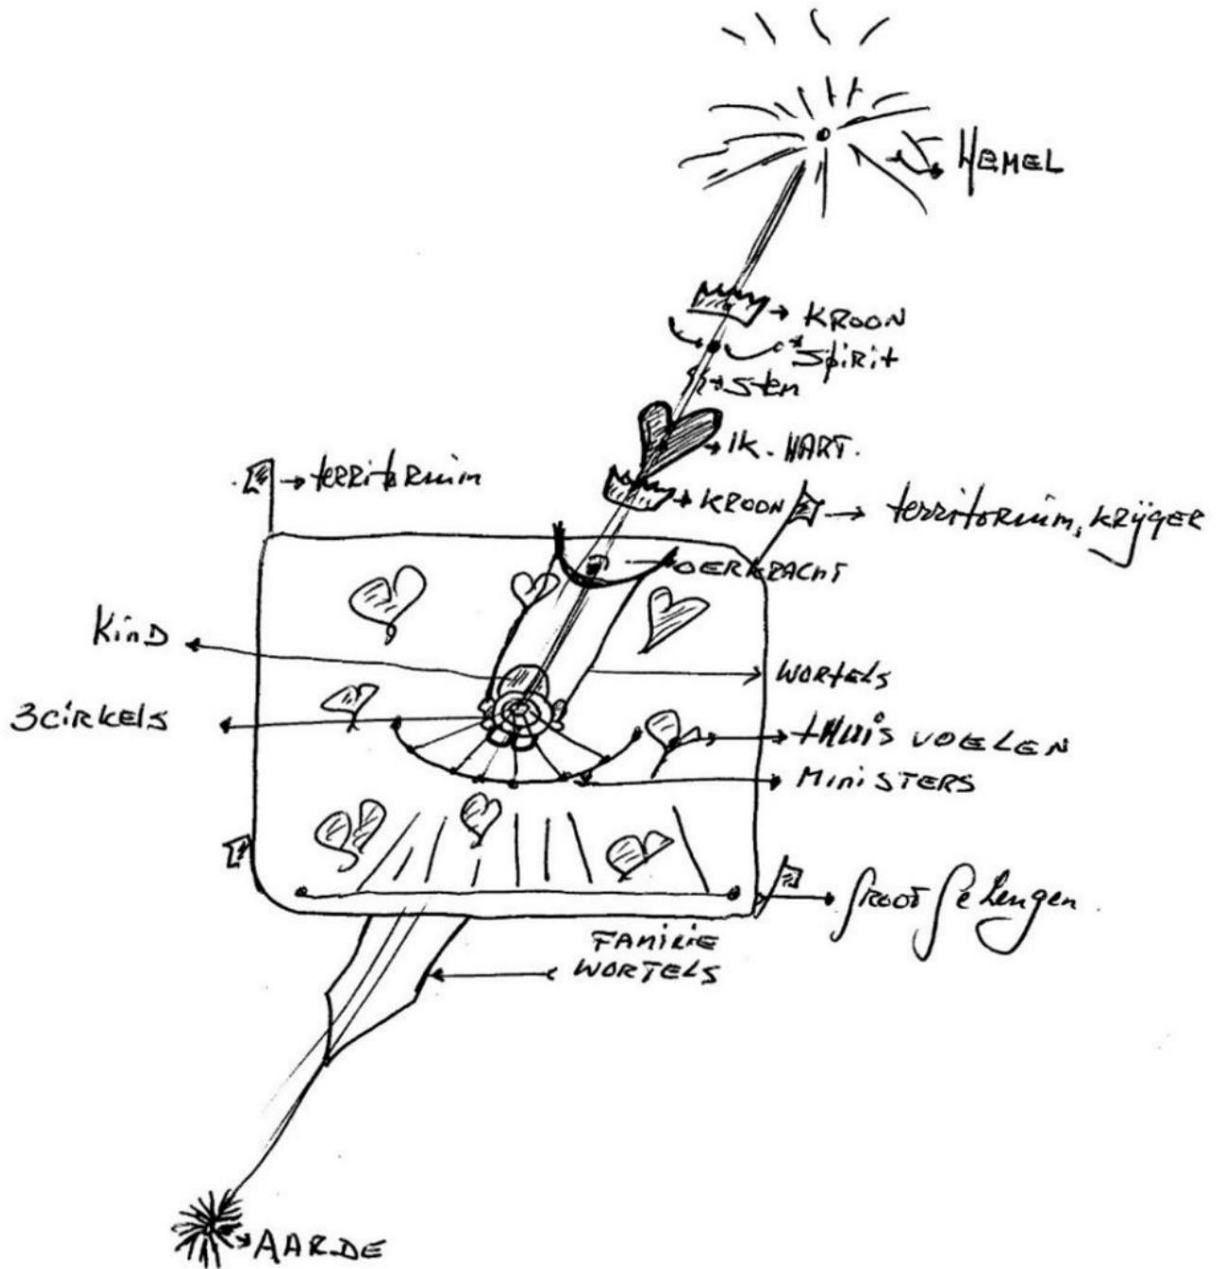 HEMEL
KROON
Spirit
Stem
IK. HART.
territorium
KROON
territorium, KRIJGER
OERKRACHT
KIND
WORTELS
3CIRKELS
tHUIS VOELEN
MINISTERS
FAMILIE
WORTELS
AARDE